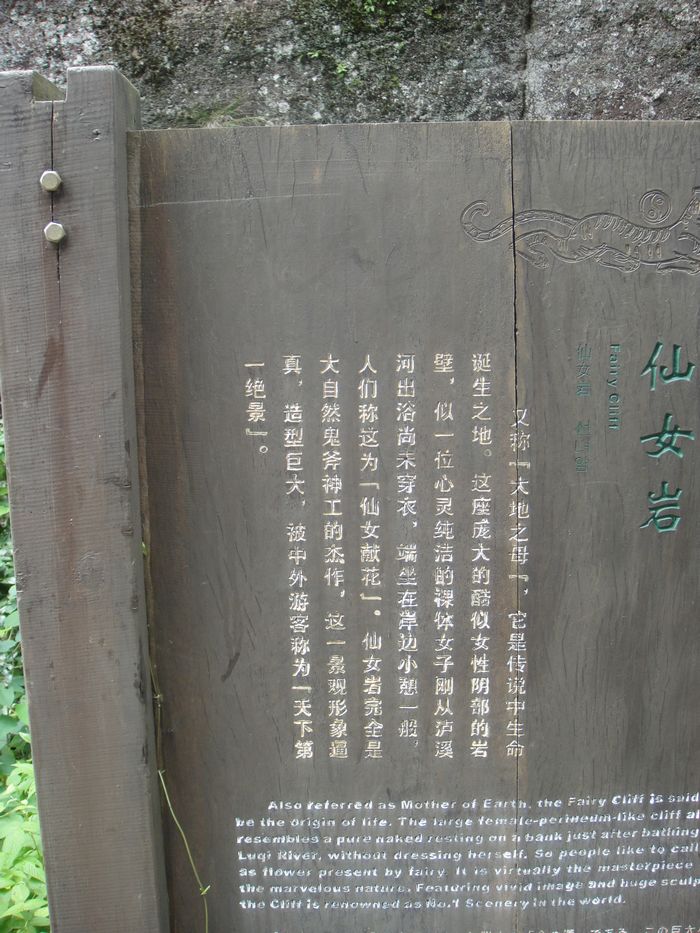 仙女岩
Fairy Cliff
仙女岩 선녀암
又称『大地之母』，它是传说中生命
诞生之地。这座庞大的酷似女性阴部的岩
壁，似一位心灵纯洁的裸体女子刚从泸溪
河出浴尚未穿衣，端坐在岸边小憩一般，
人们称这为『仙女献花』。仙女岩完全是
大自然鬼斧神工的杰作，这一景观形象逼
真，造型巨大，被中外游客称为『天下第
一绝景』。
Also referred as Mother of Earth, the Fairy Cliff is said
be the origin of life. The large female-perineum-like cliff al
resembles a pure naked resting on a bank just after bathing
Luqi River, without dressing herself. So people like to call
as flower present by fairy. It is virtually the masterpiece
the marvelous nature. Featuring vivid image and huge sculp
the Cliff is renowned as No.1 Scenery in the world.